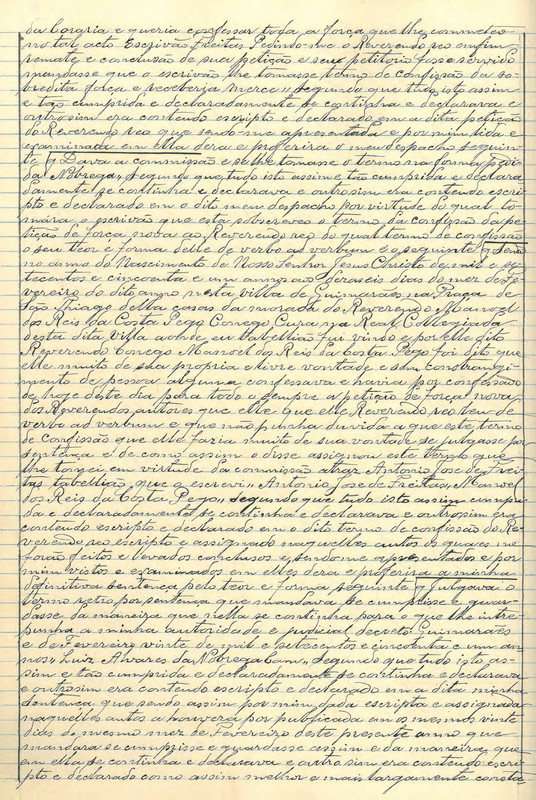 da Coraria e queria confessar toda a força que lhe commeteo
no tal acto Escrivão Freitas Pedindo-me o Reverendo reo emfim
remate e conclusão de sua petição e seu petitorio fosse servido
mandasse que o escrivão lhe tomasse termo de confissão da so-
bredita força e receberia merce,, segundo que tudo isto assim
e tão cumprida e declaradamente se continha e declarava e
outrosim era contendo escripto e declarado em a dita petição
do Reverendo reo que sendo-me apresentada e por mim lida e
examinada em ella dera e proferira o meu despacho seguin-
te Dava a commissão e se lhe tomasse o termo na forma
da Nobrega,, segundo que tudo isto assim e tão cumprida e declara
damente se continha e declarava e outrosim era contendo escri-
pto e declarado em o dito meu despacho por virtude do qual to-
mára o escrivão que esta sobscreveo o termo da confissão da pe-
tição de força nova ao Reverendo reo do qual termo de confissão
o seu teor e forma delle de verbo ad verbum é o seguinte
no anno do Nascimento de Nosso Senhor Jesus Christo de mil e se-
tecentos e cincoenta e um annos aos dezaseis dias do mez de Fe-
vereiro do dito anno nesta villa de Guimarães na Praça de
São Thiago della casas da morada do Reverendo Manoel
dos Reis da Costa Pego Conego Cura na Real Collegiada
desta dita Villa aonde eu tabellião fui vindo e por elle dito
Reverendo Conego Manoel dos Reis da Costa Pego foi dito que
elle muito de sua propria e livre vontade e sem constrangi-
mento de pessoa alguma confessava e havia por confessado
de hoje deste dia para todo o sempre a petição de força nova
dos Reverendos autores que elle que elle Reverendo reo tem de
verbo ad verbum e que não punha duvida a que este termo
de Confissão que elle fazia muito de sua vontade se julgasse por
sentença e de como assim o disse assignou este termo que
lhe tomei em virtude da commissão atraz Antonio Jose de Frei-
tas tabellião que o escrevi,, Antonio Jose de Freitas,, Manoel
dos Reis da Costa Pego,, segundo que tudo isto assim cumpri-
da e declaradamente se continha e declarava e outrosim era
contendo escripto e declarado em o dito termo de confissão do Re-
verendo reo escripto e assignado naquelles autos os quaes me
forão feitos e levados conclusos e sendo-me apresentados e por
mim vistos e examinados em elles dera e proferira a minha
definitiva sentença pelo teor e forma seguinte Julgava o
termo retro por sentença que mandava se cumprisse e guar-
dasse da maneira que nella se continha para o que lhe inter-
punha a minha autoridade e judicial decreto Guimarães
e de Fevereiro vinte de mil e setecentos e cincoenta e um an-
nos,, Luiz Alvares da Nobrega Cam,, segundo que tudo isto as-
sim e tão cumprida e declaradamente se continha e declarava
e outrosim era contendo escripto e declarado em a dita minha
sentença que sendo assim por mim dada escripta e assignada
naquelles autos a houvera por publicada em os mesmos vinte
dias do mesmo mez de Fevereiro deste presente anno que
mandara se cumprisse e guardasse assim e da maneira que
em ella se continha e declarava e outrosim era contendo escri-
pto e declarado como assim melhor e mais largamente consta